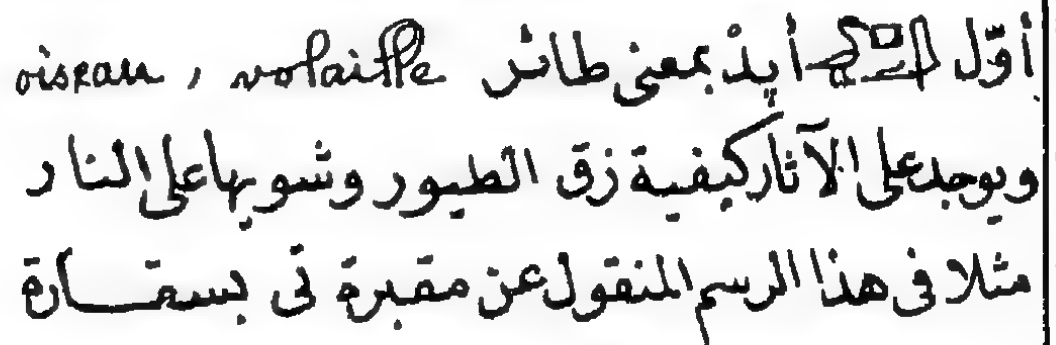 أوّل أپدْ بمعنى طائر oiseau , volaille
ويوجد على الآثار كيفية زق الطيور وشويها على النار
مثلا فى هذا الرسم المنقول عن مقبرة تى بسقارة